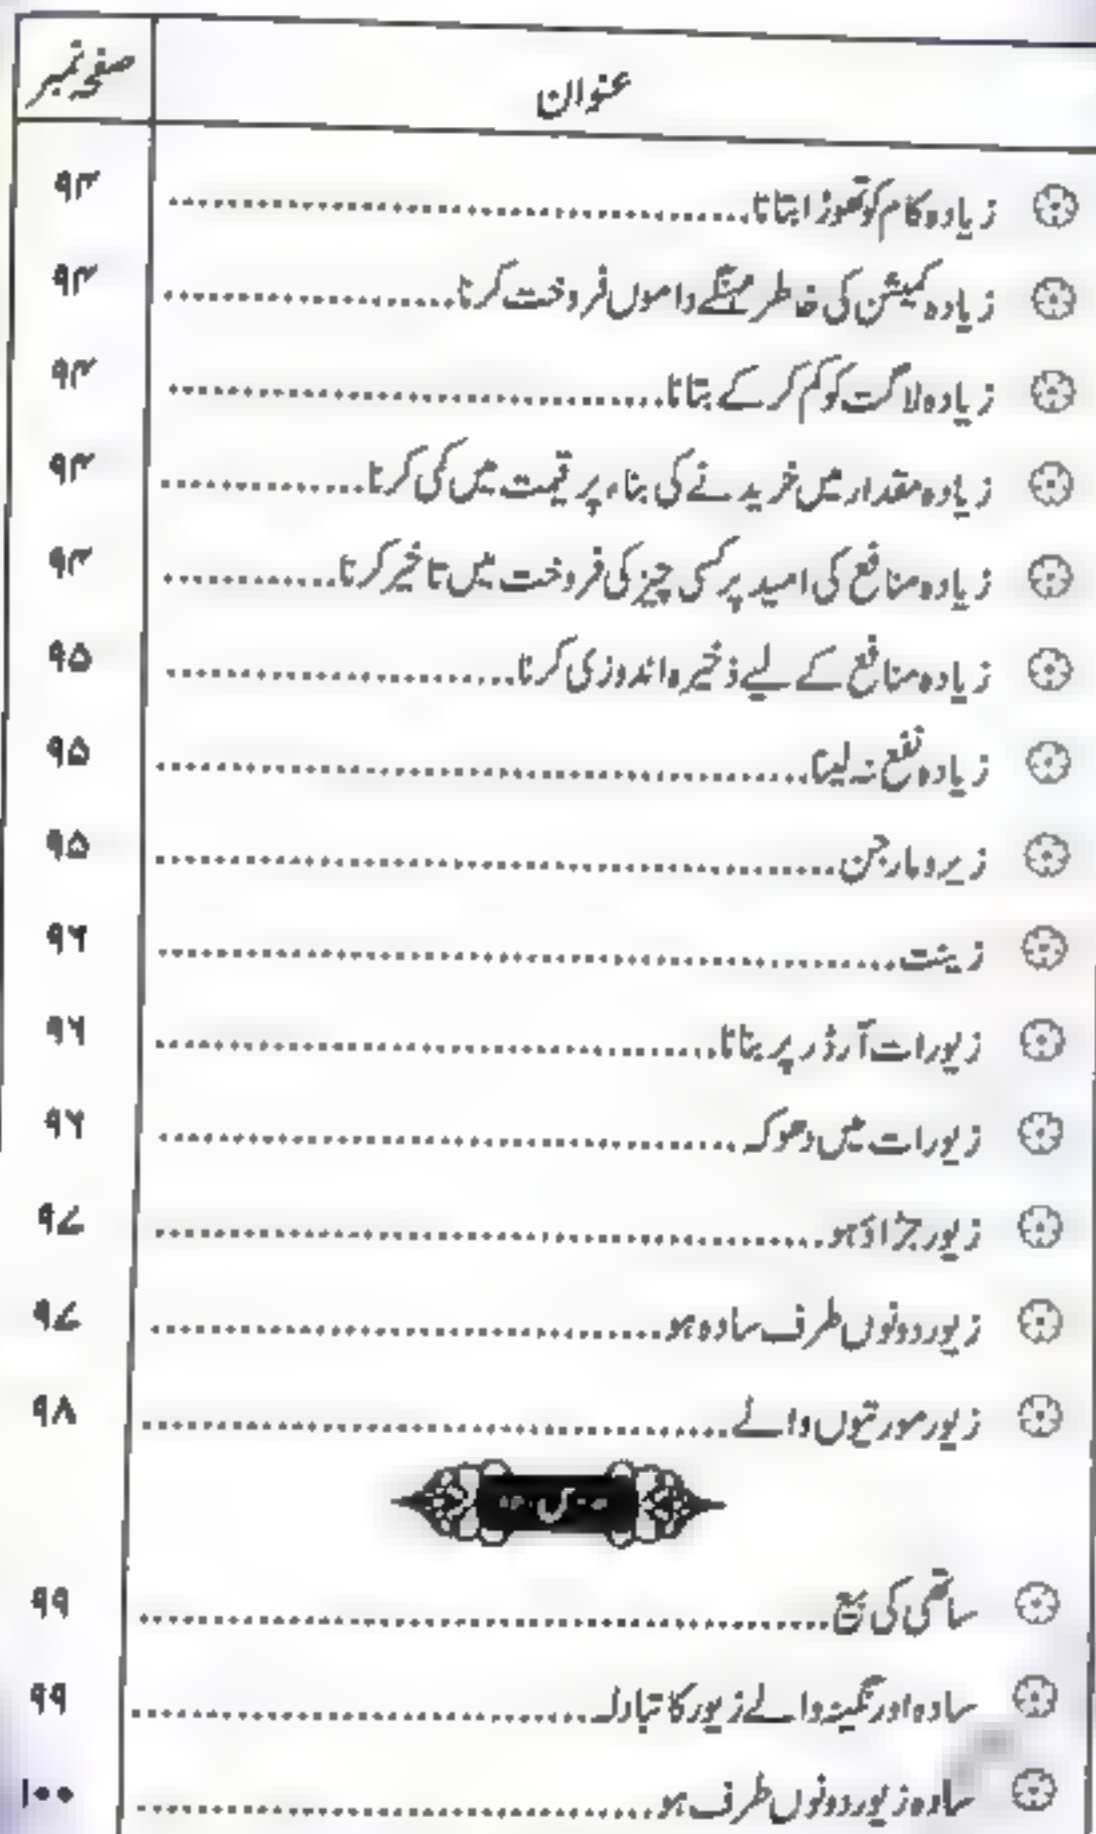 عنوان صفحہ نمبر
زیادہ کام کو تھوڑا بتانا ۹۴
زیادہ کمیشن کی خاطر مہنگے داموں فروخت کرنا ۹۴
زیادہ لاگت کو کم کر کے بتانا ۹۴
زیادہ مقدار میں خریدنے کی بناء پر قیمت میں کمی کرنا ۹۴
زیادہ منافع کی امید پر کسی چیز کی فروخت میں تاخیر کرنا ۹۴
زیادہ منافع کے لیے ذخیرہ اندوزی کرنا ۹۵
زیادہ نفع نہ لینا ۹۵
زیرو مارجن ۹۵
زینت ۹۶
زیورات آرڈر پر بنانا ۹۶
زیورات میں دھوکہ ۹۶
زیور جڑاؤ ہو ۹۷
زیور دونوں طرف سادہ ہو ۹۷
زیور مورتیوں والے ۹۸
س
ساتھی کی بیع ۹۹
سادہ اور نگینہ والے زیور کا تبادلہ ۹۹
سادہ زیور دونوں طرف ہو ۱۰۰